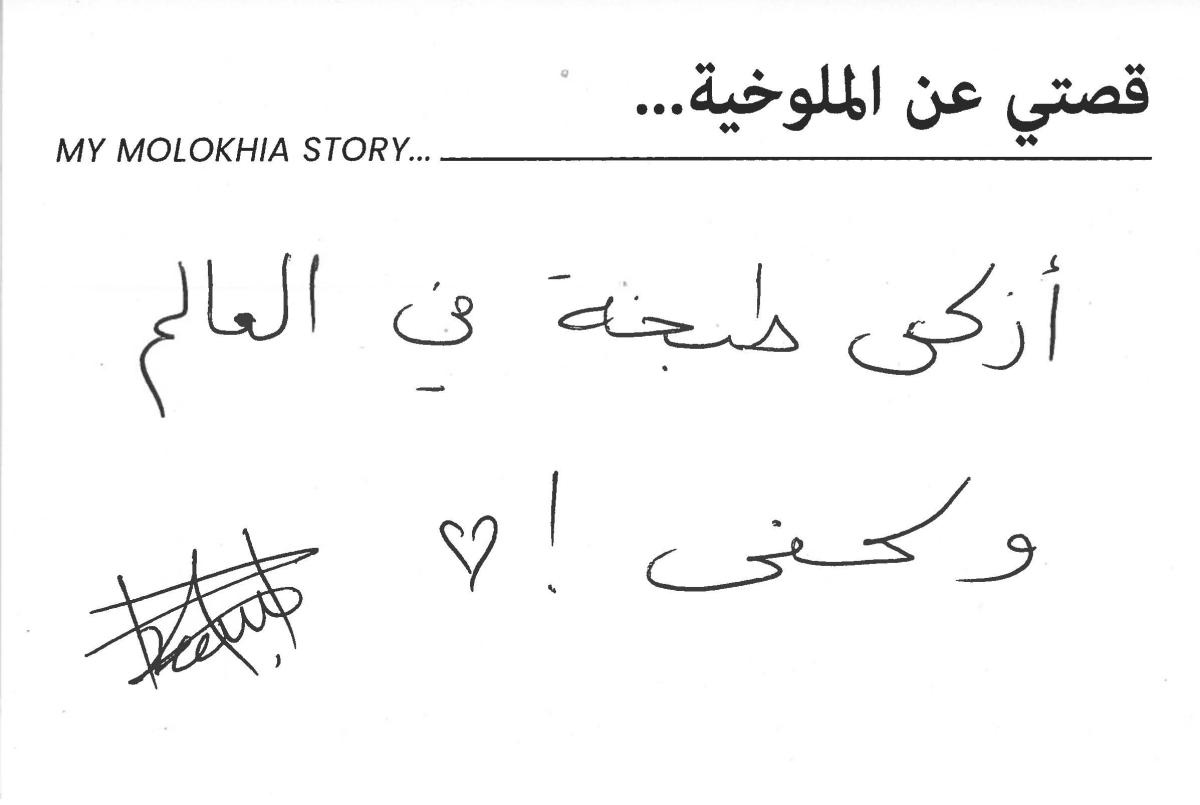 قصتي عن الملوخية...
MY MOLOKHIA STORY...
أزكى طبخة في العالم
وكفى ! ♡